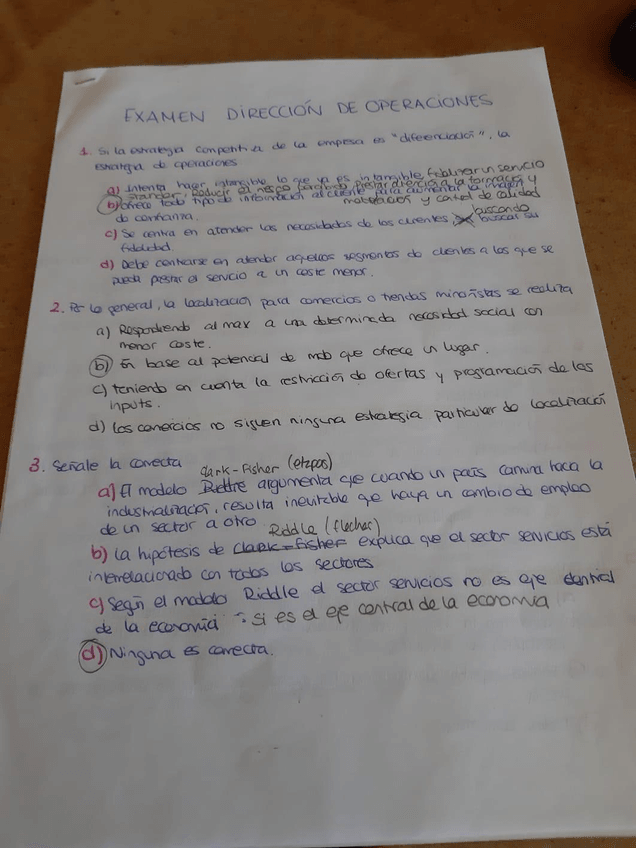 EXAMEN DIRECCIÓN DE OPERACIONES
1. Si la estrategia competitiva de la empresa es "diferenciación", la
estrategia de operaciones
a) Intenta hacer intangible lo que ya es intangible. Fabricar un servicio
standar, Reducir el riesgo percibido, prestar atención a la formación y
b) Ofrece todo tipo de información al cliente para aumentar la imagen
motivación y control de calidad
de confianza.
c) Se centra en atender las necesidades de los clientes buscando
buscar su
fidelidad
d) Debe centrarse en atender aquellos segmentos de clientes a los que se
pueda prestar el servicio a un coste menor.
2. Por lo general, la localización para comercios o tiendas minoristas se realiza
a) Respondiendo al max a una determinada necesidad social con
menor coste.
b) En base al potencial de mdo que ofrece un lugar.
c) teniendo en cuenta la restricción de ofertas y programación de los
inputs.
d) los comercios no siguen ninguna estrategia particular de localización
3. Señale la correcta
Clark-Fisher (etapas)
a) El modelo Riddle argumenta que cuando un país camina hacia la
industrialización, resulta inevitable que haya un cambio de empleo
de un sector a otro
Riddle (flechas)
b) La hipótesis de Clark-Fisher explica que el sector servicios está
interrelacionado con todos los sectores
c) Según el modelo Riddle el sector servicios no es eje central
de la economía : si es el eje central de la economía
d) Ninguna es correcta.